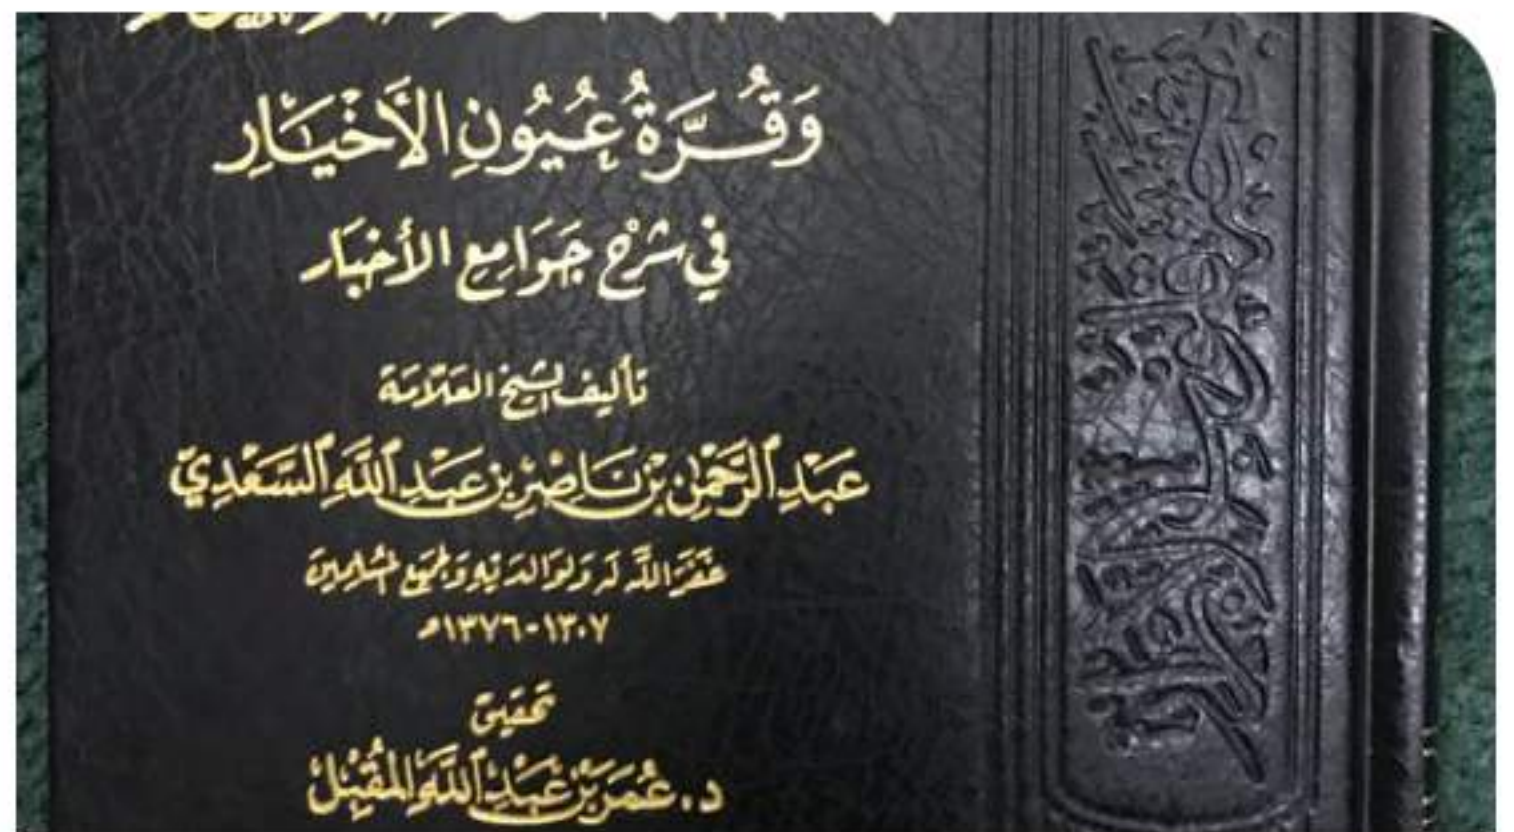 وَقُرَّةُ عُيُونِ الأَخْيَارِ
في شَرْحِ جَوَامِعِ الأَخْبَار
تأليف الشيخ العَلّامَة
عَبْدِ الرَّحْمٰنِ بْنِ نَاصِرِ بْنِ عَبْدِ اللَّهِ السَّعْدِيّ
غَفَرَ اللَّه لَهُ وَلِوَالدَيْهِ وَلِجَمِيعِ المُسْلِمِينَ
١٣٠٧-١٣٧٦هـ
تحقيق
د. عُمَر بْن عَبْدِ اللَّهِ المُقْبِل